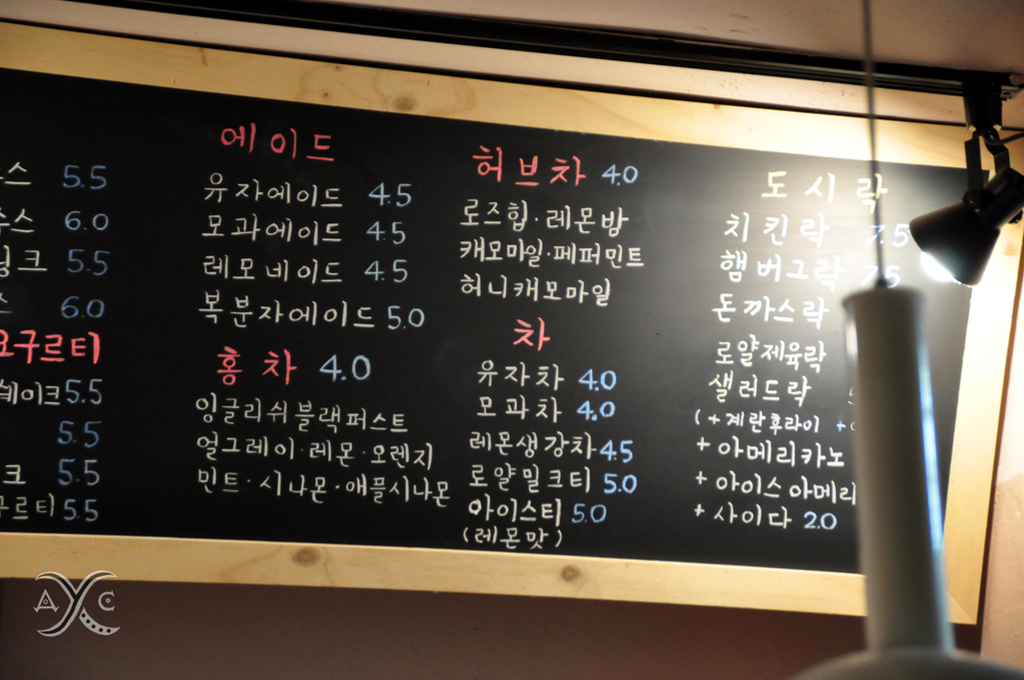 스 5.5
6.0
크 5.5
스 6.0
요구르티
쉐이크 5.5
5.5
크 5.5
구르티 5.5
에이드
유자에이드 4.5
모과에이드 4.5
레모네이드 4.5
복분자에이드 5.0
홍차 4.0
잉글리쉬블랙퍼스트
얼그레이·레몬·오렌지
민트·시나몬·애플시나몬
허브차 4.0
로즈힙·레몬밤
캐모마일·페퍼민트
허니캐모마일
차
유자차 4.0
모과차 4.0
레몬생강차 4.5
로얄밀크티 5.0
아이스티 5.0
(레몬맛)
도시락
치킨락 7.5
햄버그락
돈까스락
로얄제육락
샐러드락
(+계란후라이 +
+아메리카노
+아이스아메리
+사이다 2.0
AYC